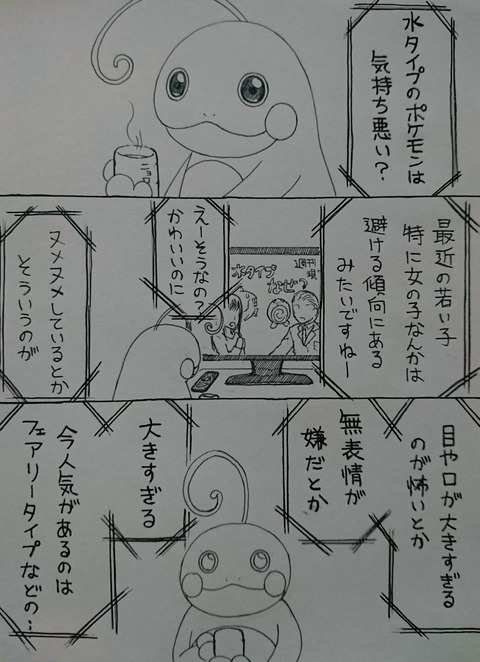 水タイプのポケモンは
気持ち悪い？
ニョロ
最近の若い子
特に女の子なんかは
避ける傾向にある
みたいですねー
週刊
水タイプ
なぜ？
えーそうなの？
かわいいのに
ヌメヌメしているとか
そういうのが
目や口が大きすぎる
のが怖いとか
無表情が
嫌だとか
大きすぎる
今人気があるのは
フェアリータイプなどの…